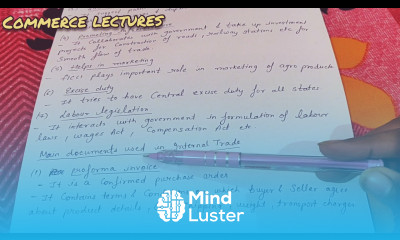 COMMERCE LECTURES
- It collaborates with government & take up investment
projects for Construction of roads, railway stations etc for
Smooth flow of trade.
Helps in marketing
FICCI plays important role in marketing of agro products
(c) Excise duty
- It tries to have Central excise duty for all states
Labour legislation
- It interacts with government in formulation of labour
laws, wages Act, Compensation Act etc
Main documents used in Internal Trade
(1) Proforma invoice
- It is a Confirmed purchase order
- It Contains terms & which buyer & Seller agree
about product details, weight, transport charges
Mind
Luster